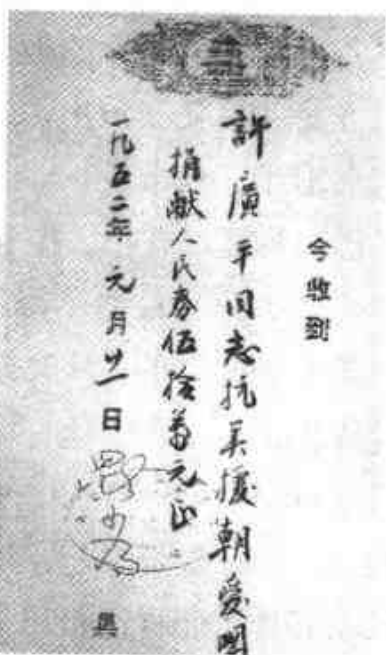 今收到
許廣平同志抗美援朝愛國
捐献人民券伍拾萬元正
一九五二年元月廿一日 具